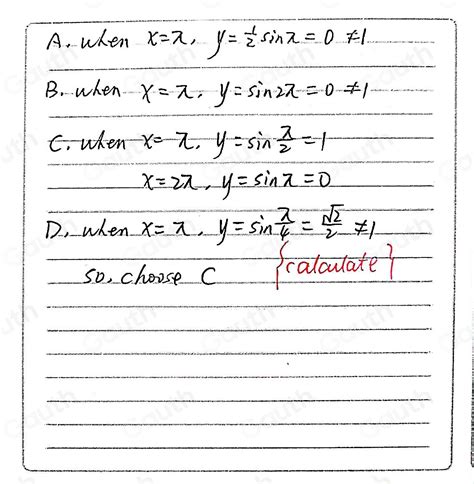 A. when x=π, y=½sinπ=0≠1
B. when x=π, y=sin2π=0≠1
C. when x=π, y=sin π/2=1
x=2π, y=sinπ=0
D. when x=π, y=sin π/4=√2/2≠1
so, choose C {calculate}